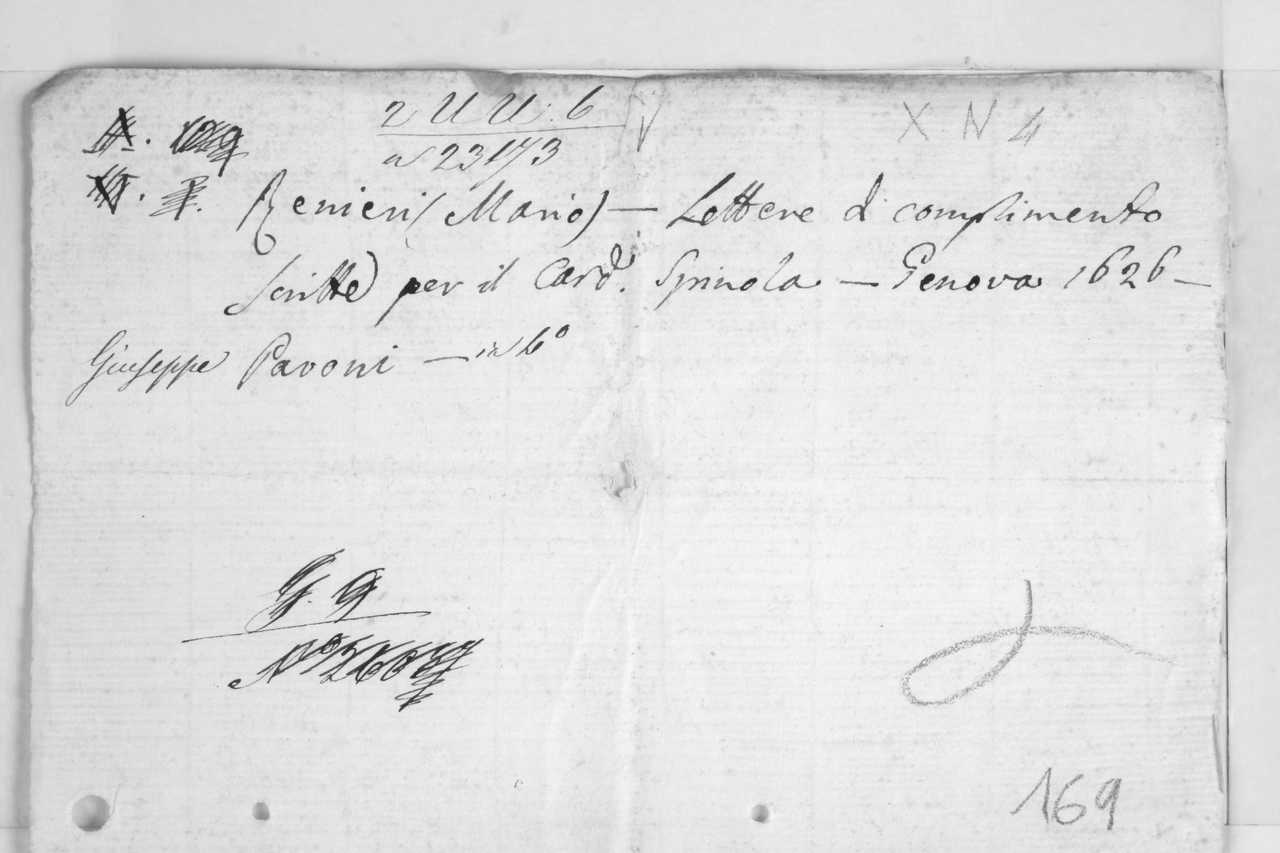 2 U U. 6
X N 4
n 23173
Renieri (Mario) — Lettere di complimento
scritte per il Card. Spinola — Genova 1626 —
Giuseppe Pavoni — in 6°
G. 9
169